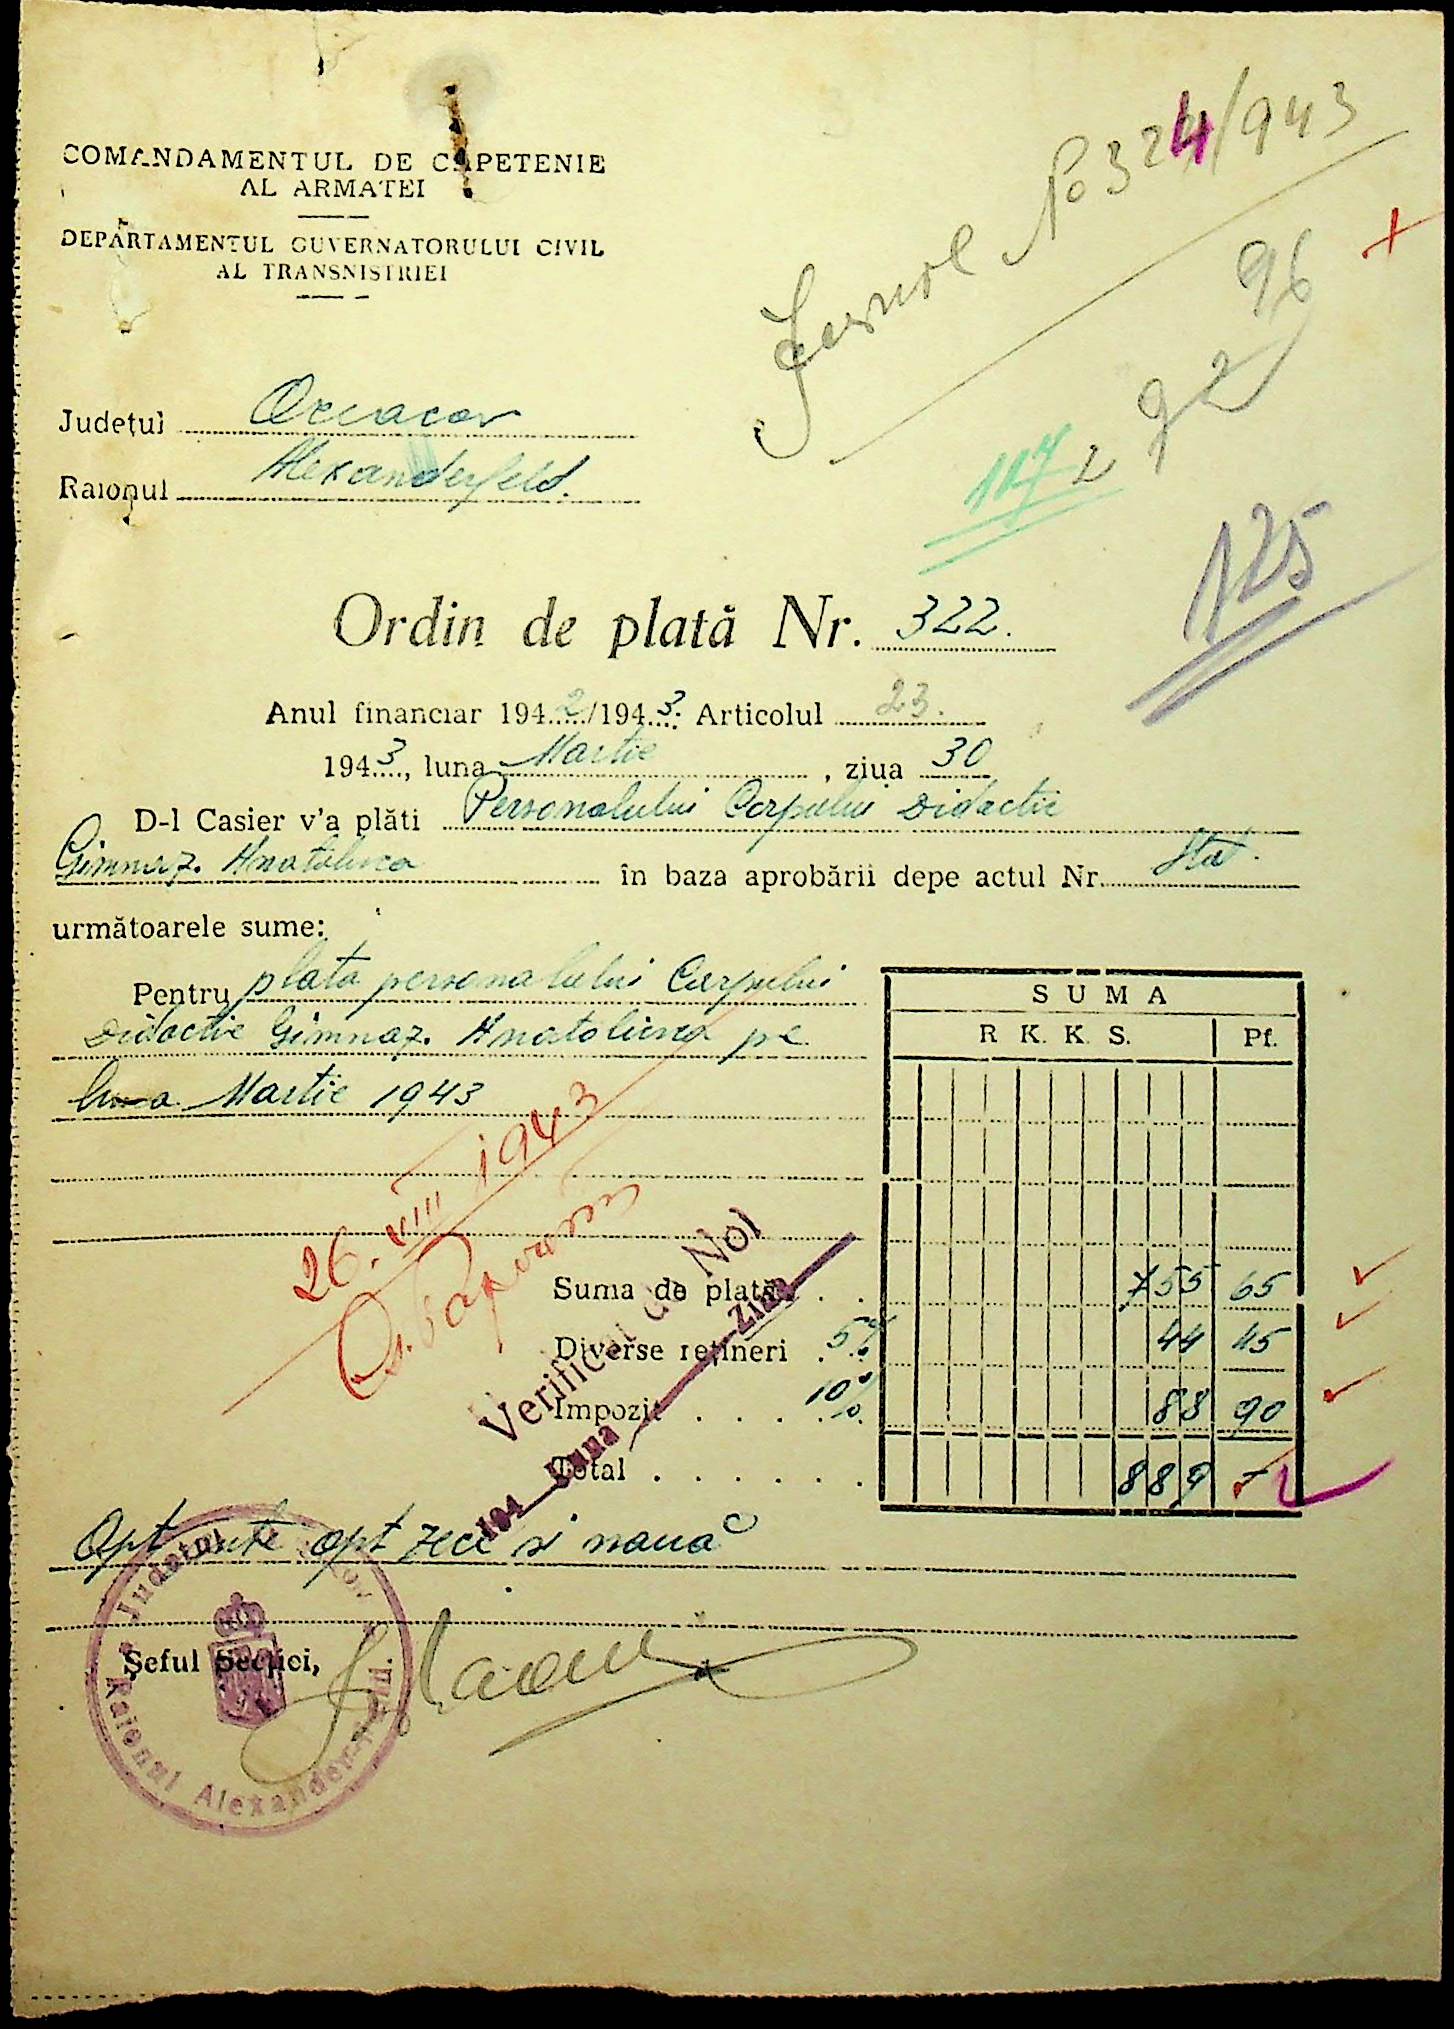 COMANDAMENTUL DE CAPETENIE
AL ARMATEI
DEPARTAMENTUL GUVERNATORULUI CIVIL
AL TRANSNISTRIEI
No 324/943
96
92
2
117
125
Județul Oceacov
Raionul Alexanderfeld.
Ordin de plată Nr. 322.
Anul financiar 1942/1943. Articolul 23.
1943, luna Martie, ziua 30
D-l Casier v'a plăti Personalului Corpului Didactic
Gimnaz. Anatolievca în baza aprobării depe actul Nr. Stat.
următoarele sume:
Pentru plata personalului Corpului
Didactic Gimnaz. Anatolievca pe
luna Martie 1943
SUMA
R K. K. S. Pf.
26. VIII 1943
Verificat de Noi
194 Luna Ziua
Suma de plată . . 755 65
Diverse rețineri . 5% 44 45
Impozit . . . . 10% 88 90
Total . . . . . . 889 -
Opt sute opt zece si nouă
Șeful Secției,
Județul
Raionul Alexander-feld.